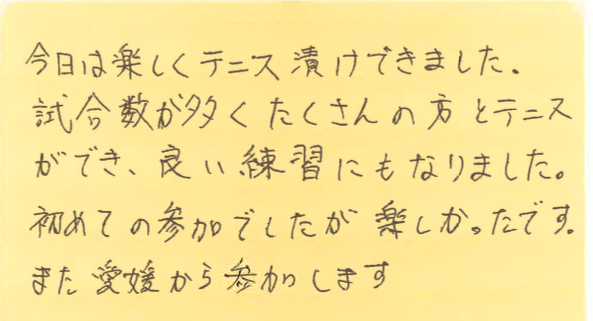 今日は楽しくテニス漬けできました。
試合数が多くたくさんの方とテニス
ができ、良い練習にもなりました。
初めての参加でしたが楽しかったです。
また愛媛から参加します